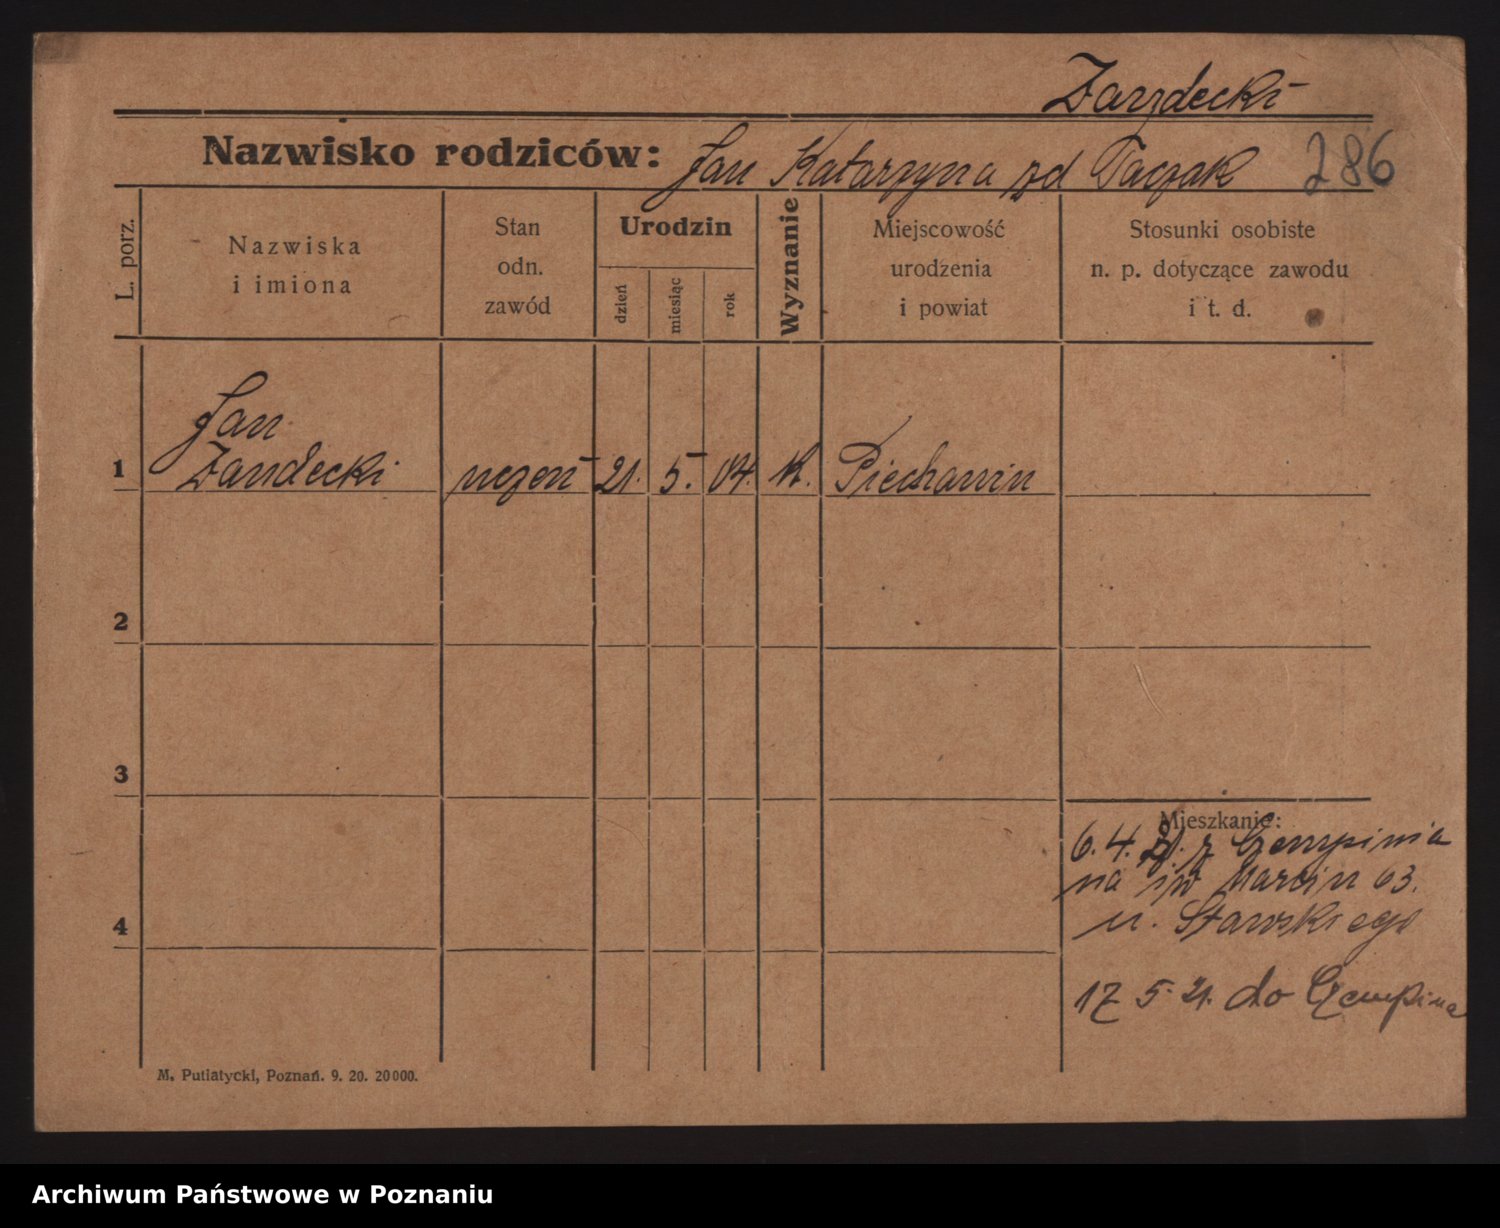 Nazwisko rodziców: Jan Katarzyna zd Taczak
286
L. porz.
Nazwiska
i imiona
Stan
odn.
zawód
Urodzin
dzień
miesiąc
rok
Wyznanie
Miejscowość
urodzenia
i powiat
Stosunki osobiste
n. p. dotyczące zawodu
i t. d.
Jan
1
uczeń 21. 5. 04. K. Piechanin
2
3
4
Mieszkanie:
6. 4. 21. z Czempinia
na św Marcin 63.
u.
17 5 21. do Czempina
M. Putiatycki, Poznań. 9. 20. 20000.
Archiwum Państwowe w Poznaniu